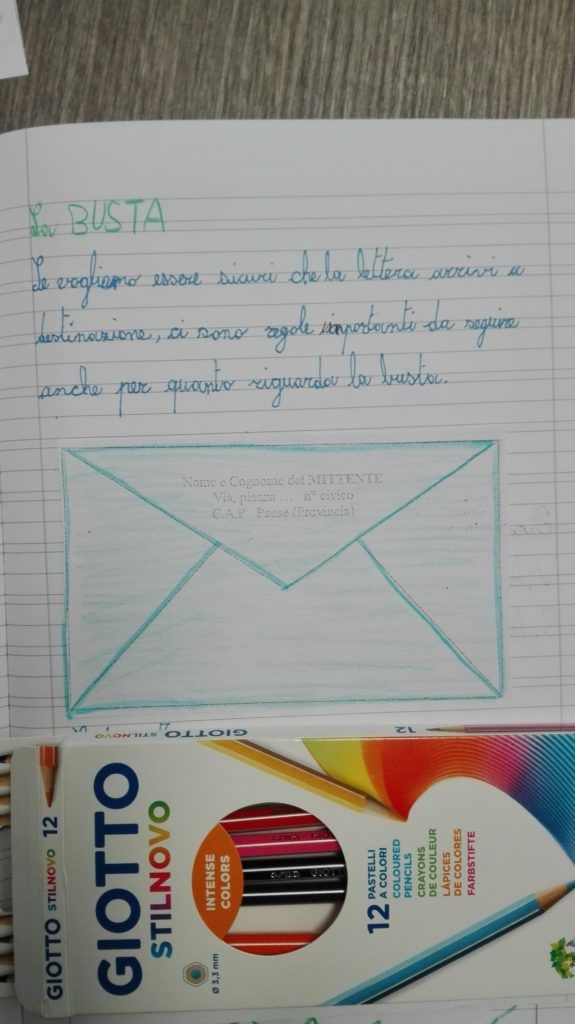 La BUSTA
Se vogliamo essere sicuri che la lettera arrivi a
destinazione, ci sono regole importanti da seguire
anche per quanto riguarda la busta.
Nome e Cognome del MITTENTE
Via, piazza ... n° civico
C.A.P Paese (Provincia)
GIOTTO STILNOVO 12
GIOTTO STILNOVO 12
GIOTTO
STILNOVO
INTENSE
COLORS
GIOTTO
12 PASTELLI
A COLORI
COLOURED
PENCILS
CRAYONS
DE COULEUR
LÁPICES
DE COLORES
FARBSTIFTE
Ø 3,3 mm